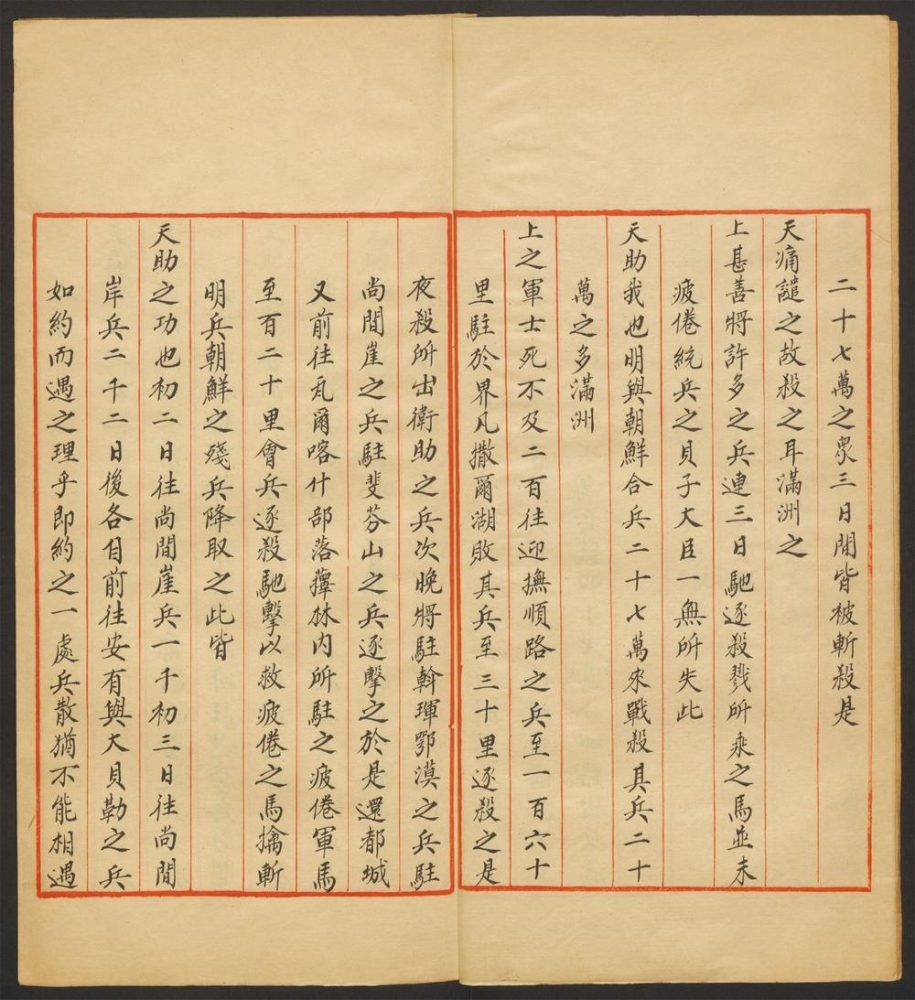 二十七萬之衆三日間皆被斬殺是
天痛譴之故殺之耳滿洲之
上甚善將許多之兵連三日馳逐殺戮所乘之馬並未
疲倦統兵之貝子大臣一無所失此
天助我也明與朝鮮合兵二十七萬來戰殺其兵二十
萬之多滿洲
上之軍士死不及二百往迎撫順路之兵至一百六十
里駐於界凡撒爾湖敗其兵至三十里逐殺之是
夜殺所出衛助之兵次晚將駐斡琿鄂漠之兵駐
尚間崖之兵駐斐芬山之兵逐擊之於是還都城
又前往瓦爾喀什部落葦林內所駐之疲倦軍馬
至百二十里會兵逐殺馳擊以救疲倦之馬擒斬
明兵朝鮮之殘兵降取之此皆
天助之功也初二日往尚間崖兵一千初三日往尚間
岸兵二千二日後各自前往安有與大貝勒之兵
如約而遇之理乎即約之一處兵散猶不能相遇